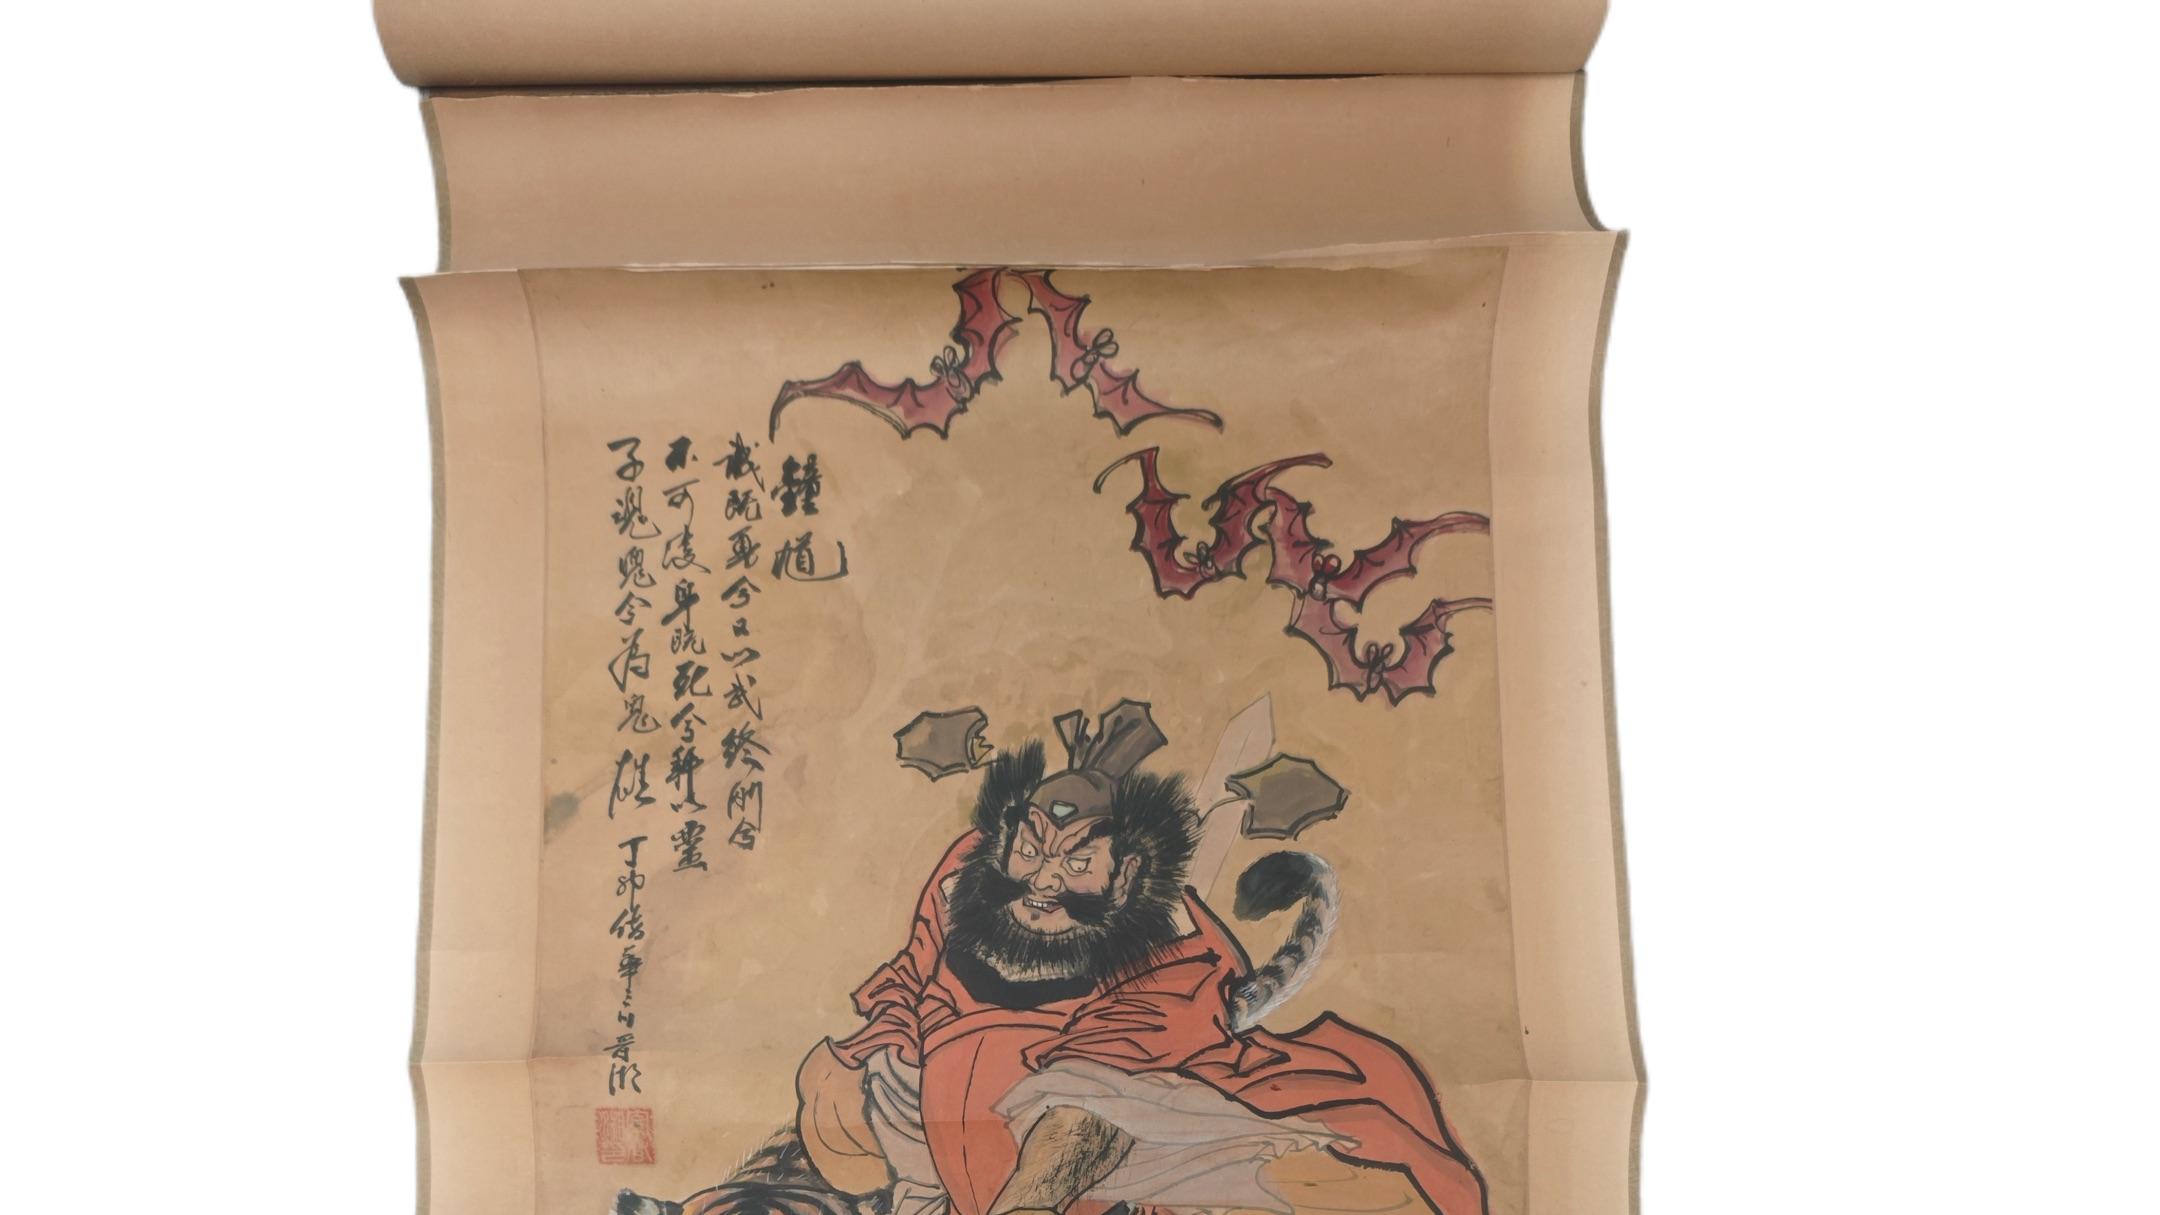 鐘馗
誠既勇兮又以武終剛兮
不可凌身既死兮神以靈
子魂魄兮為鬼雄 丁卯